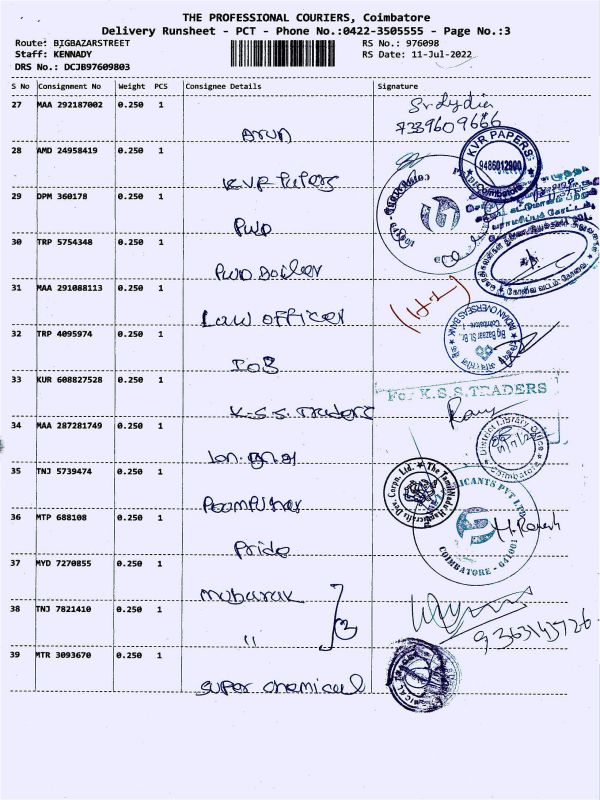 THE PROFESSIONAL COURIERS, Coimbatore
Delivery Runsheet - PCT - Phone No.:0422-3505555 - Page No.:3
Route: BIGBAZARSTREET RS No.: 976098
Staff: KENNADY RS Date: 11-Jul-2022
DRS No.: DCJB97609803
S No Consignment No Weight PCS Consignee Details Signature
27 MAA 292187002 0.250 1
Arun
7339609666
28 AMD 24958419 0.250 1
KVR Papers
KVR PAPERS
9486012900
Coimbatore
29 DPM 360178 0.250 1
PWD
30 TRP 5754348 0.250 1
PWD Boiler
31 MAA 291088113 0.250 1
Law officer
32 TRP 4095974 0.250 1
IOB
INDIAN OVERSEAS BANK
Big Bazaar St. Br.
Coimbatore - 1
33 KUR 608827528 0.250 1
K.S.S. Traders
For K.S.S.TRADERS
34 MAA 287281749 0.250 1
District Library Office
Coimbatore
35 TNJ 5739474 0.250 1
Poompuhar
The TamilNadu Handicrafts Dev. Corpn. Ltd.
36 MTP 688108 0.250 1
Pride
COIMBATORE - 641001
37 MYD 7270855 0.250 1
Mubarak
38 TNJ 7821410 0.250 1
"
2
9363145726
39 MTR 3093670 0.250 1
super chemical